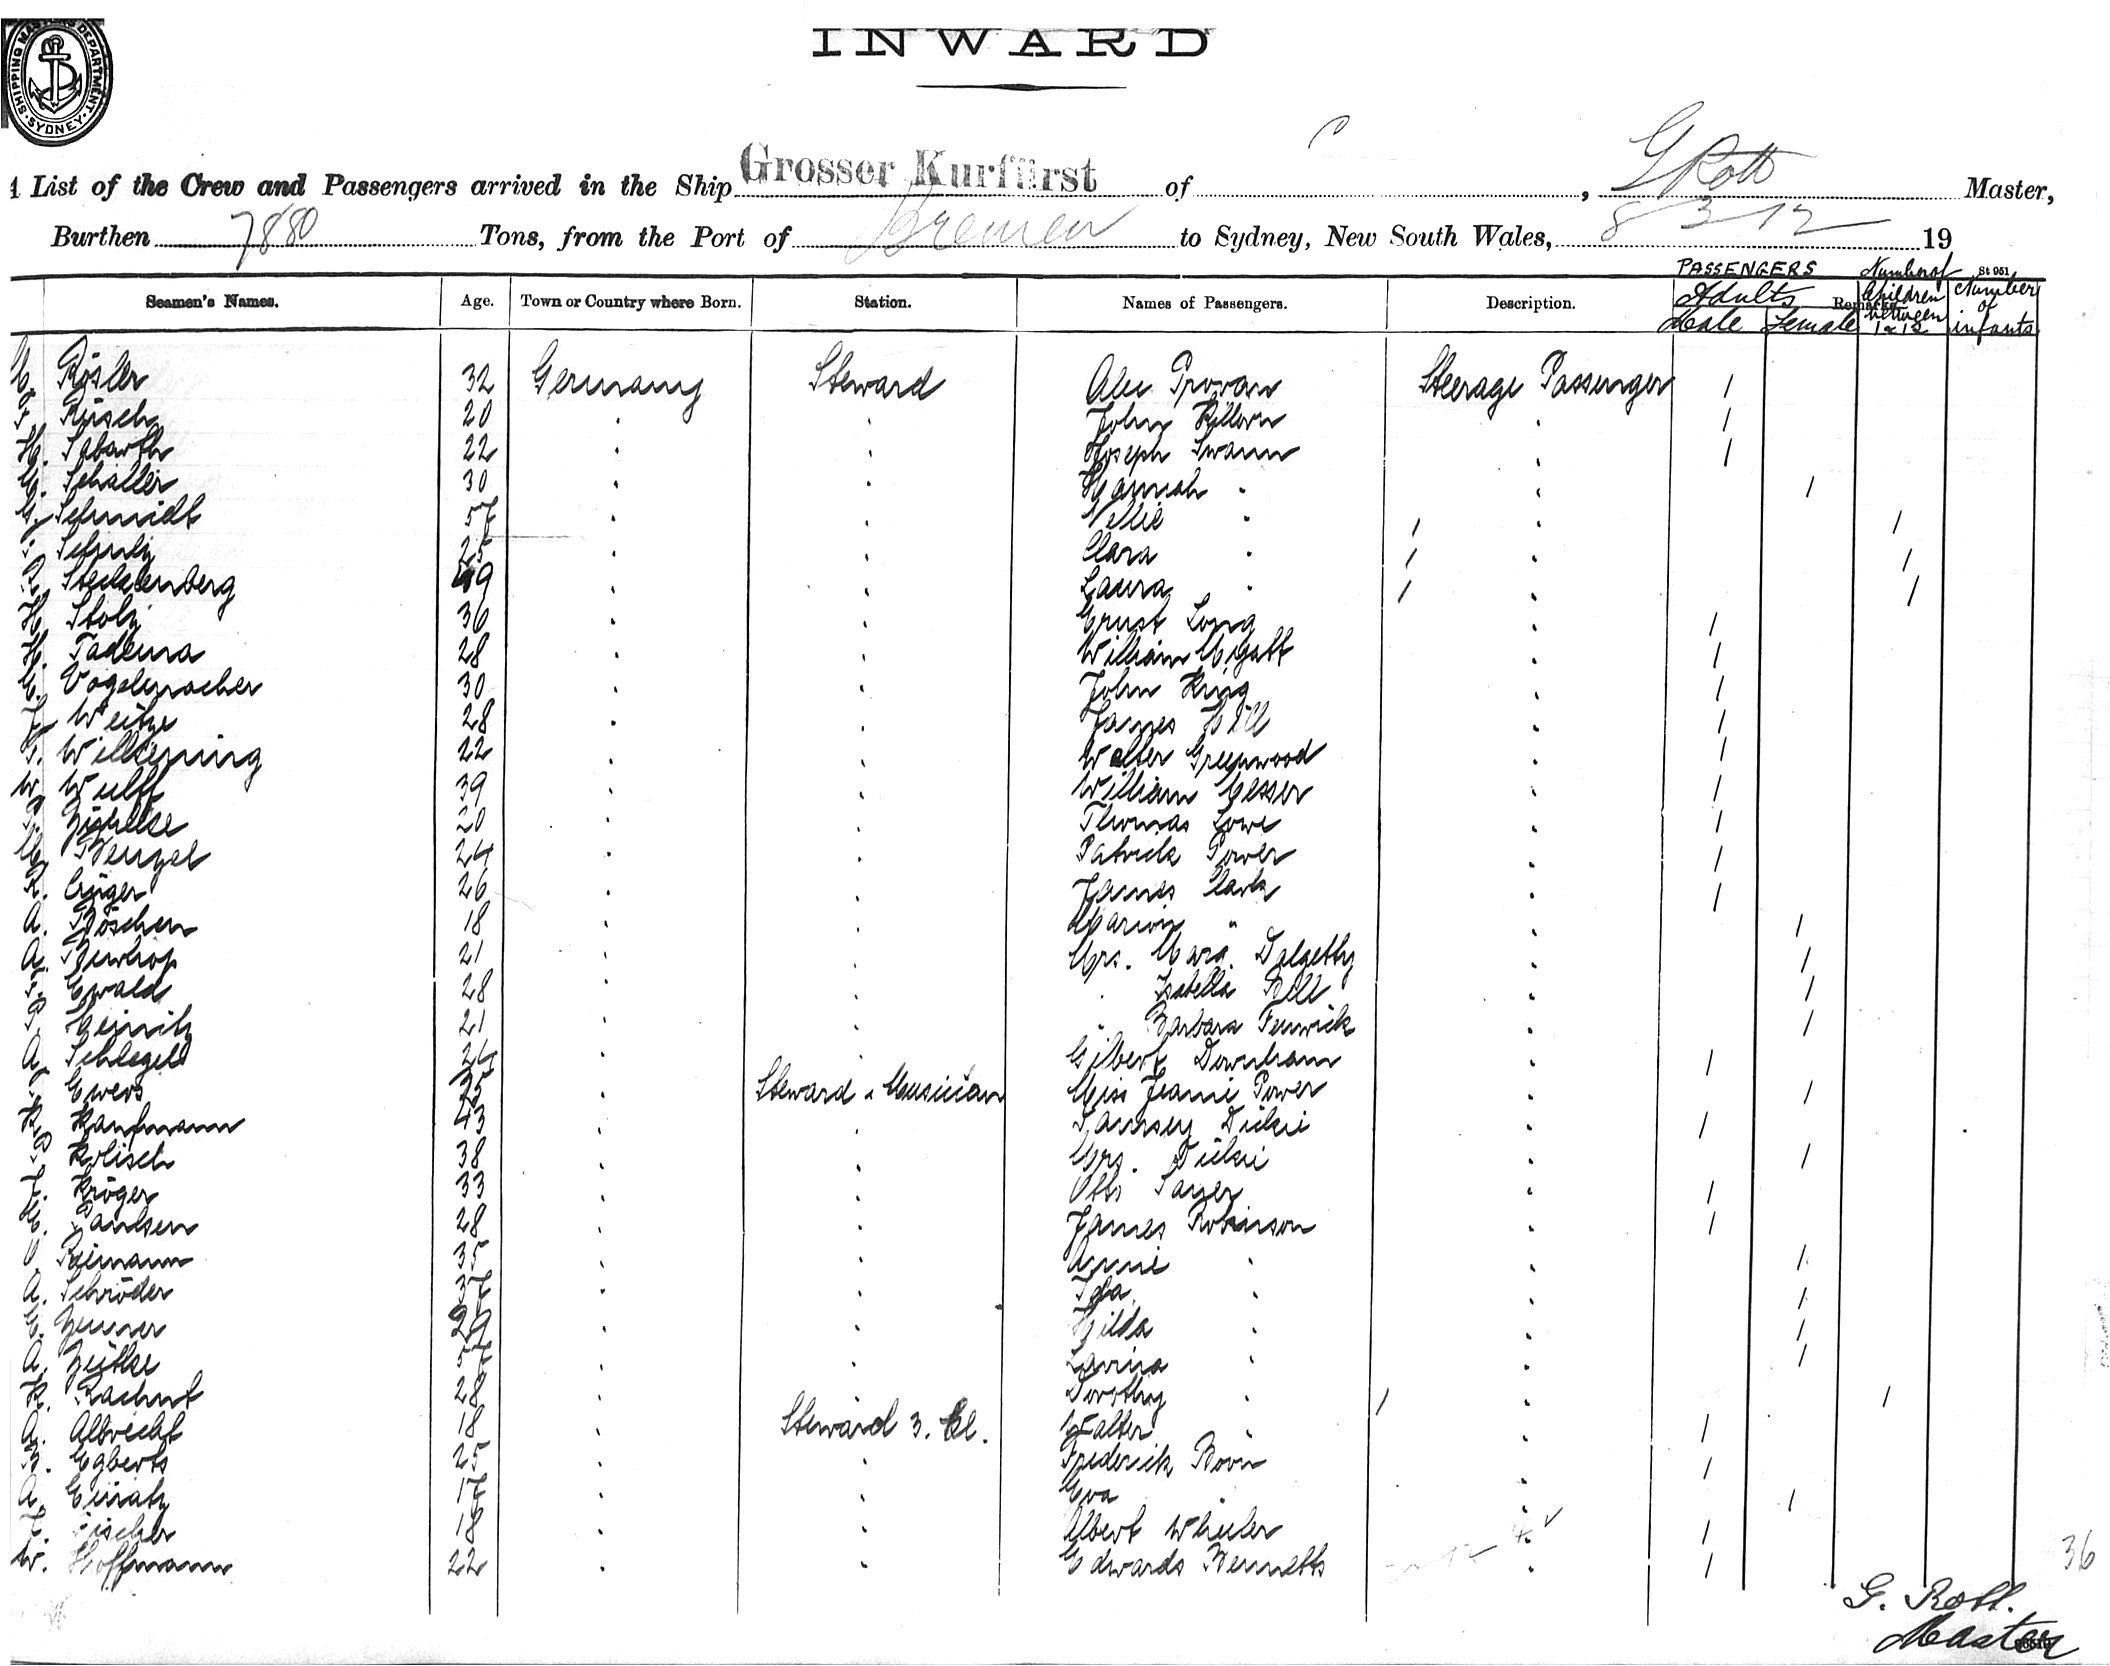 SHIPPING MASTER'S DEPARTMENT
SYDNEY
INWARD
List of the Crew and Passengers arrived in the Ship Grosser Kurfürst of , G Rott Master,
Burthen 7880 Tons, from the Port of Bremen to Sydney, New South Wales, 8 3 12 19
PASSENGERS Number of St 951 Number
Seamen's Names. Age. Town or Country where Born. Station. Names of Passengers. Description. Adults Children of
Male Female between 1 & 12 infants
Rösler 32 Germany Steward Alec Provan Steerage Passenger 1
Rüsch 20 " " John " 1
H. Sabarth 22 " " Joseph Swann " 1
Schaller 30 " " Hannah " " 1
Schmidt 57 " " Nellie " 1 " 1
Schulz 25 " " Clara " 1 " 1
Steckenberg 49 " " Laura " 1 " 1
H. Stolz 36 " " Ernst Long " 1
H. Tadema 28 " " William " 1
Vogelmacher 30 " " John King " 1
Weitze 28 " " James " 1
Wilkening 22 " " Walter Greenwood " 1
W. Wulff 39 " " William Messer " 1
20 " " Thomas Lowe " 1
Wenzel 24 " " Patrick Power " 1
Crüger 26 " " James Clark " 1
A. Böschen 18 " " Marion " " 1
A. 21 " " Mrs. Marg. Dalgetty " 1
Ewald 28 " " " Isabella Bell " 1
21 " " " Barbara Fenwick " 1
A. Schlegel " " Gilbert Downham " 1
Ewers " Steward " Musician Miss Jeanie Power " 1
Kaufmann 43 " " " 1
Kolisch 38 " " Mrs. " 1
Kröger 33 " " Otto Sauer " 1
Paulsen 28 " " James Robinson " 1
Reimann 35 " " Annie " " 1
A. Schröder 37 " " Ida " " 1
Zenner 29 " " Hilda " " 1
A. " " Lavina " " 1
" " Dorothy " 1 " 1
A. Albrecht 18 " Steward 3. Cl. Walter " " 1
Egberts 25 " " Frederick Born " 1
A. 17 " " Eva " " 1
Fischer 18 " " Albert Wheeler " 1
W. Hoffmann 22 " " Edwards Bennetts " 1
36
G. Rott.
Master